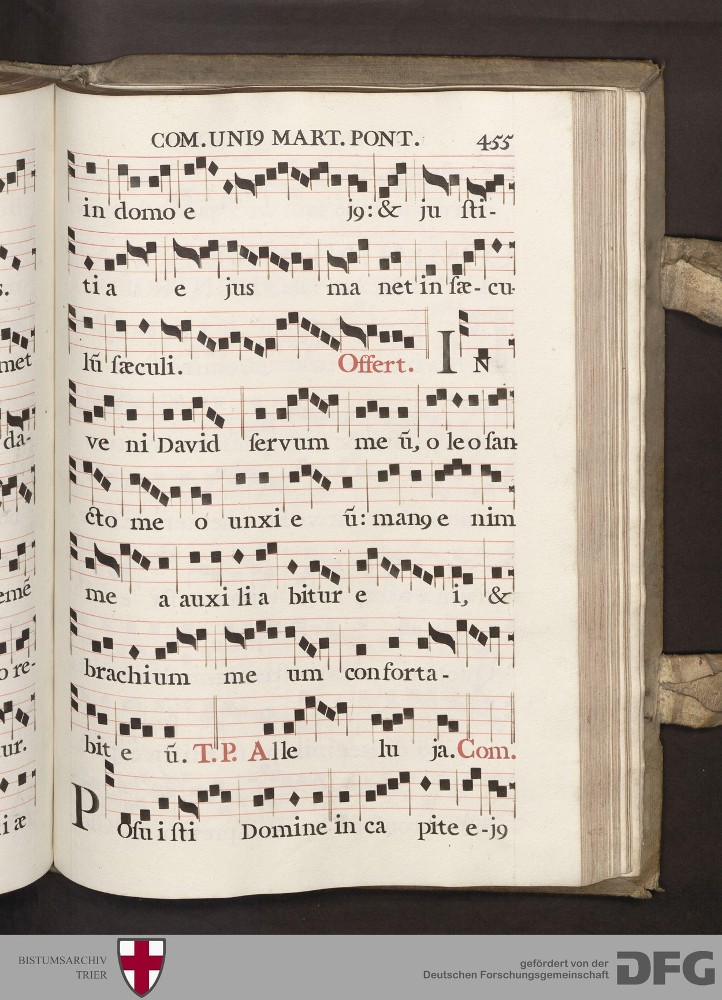 COM. UNI9 MART. PONT. 455
in domo e j9: & ju sti-
s. tia e jus ma net in sæ- cu-
met lũ sæculi. Offert. I N
da- ve ni David servum me ũ, o leo san
cto me o unxi e ũ: man9 e nim
emẽ me a auxi li a bitur e i, &
o re- brachium me um conforta-
ur. bit e ũ. T. P. Alle lu ja. Com.
i æ POsu i sti Domine in ca pite e-j9
BISTUMSARCHIV
TRIER
gefördert von der
Deutschen Forschungsgemeinschaft
DFG